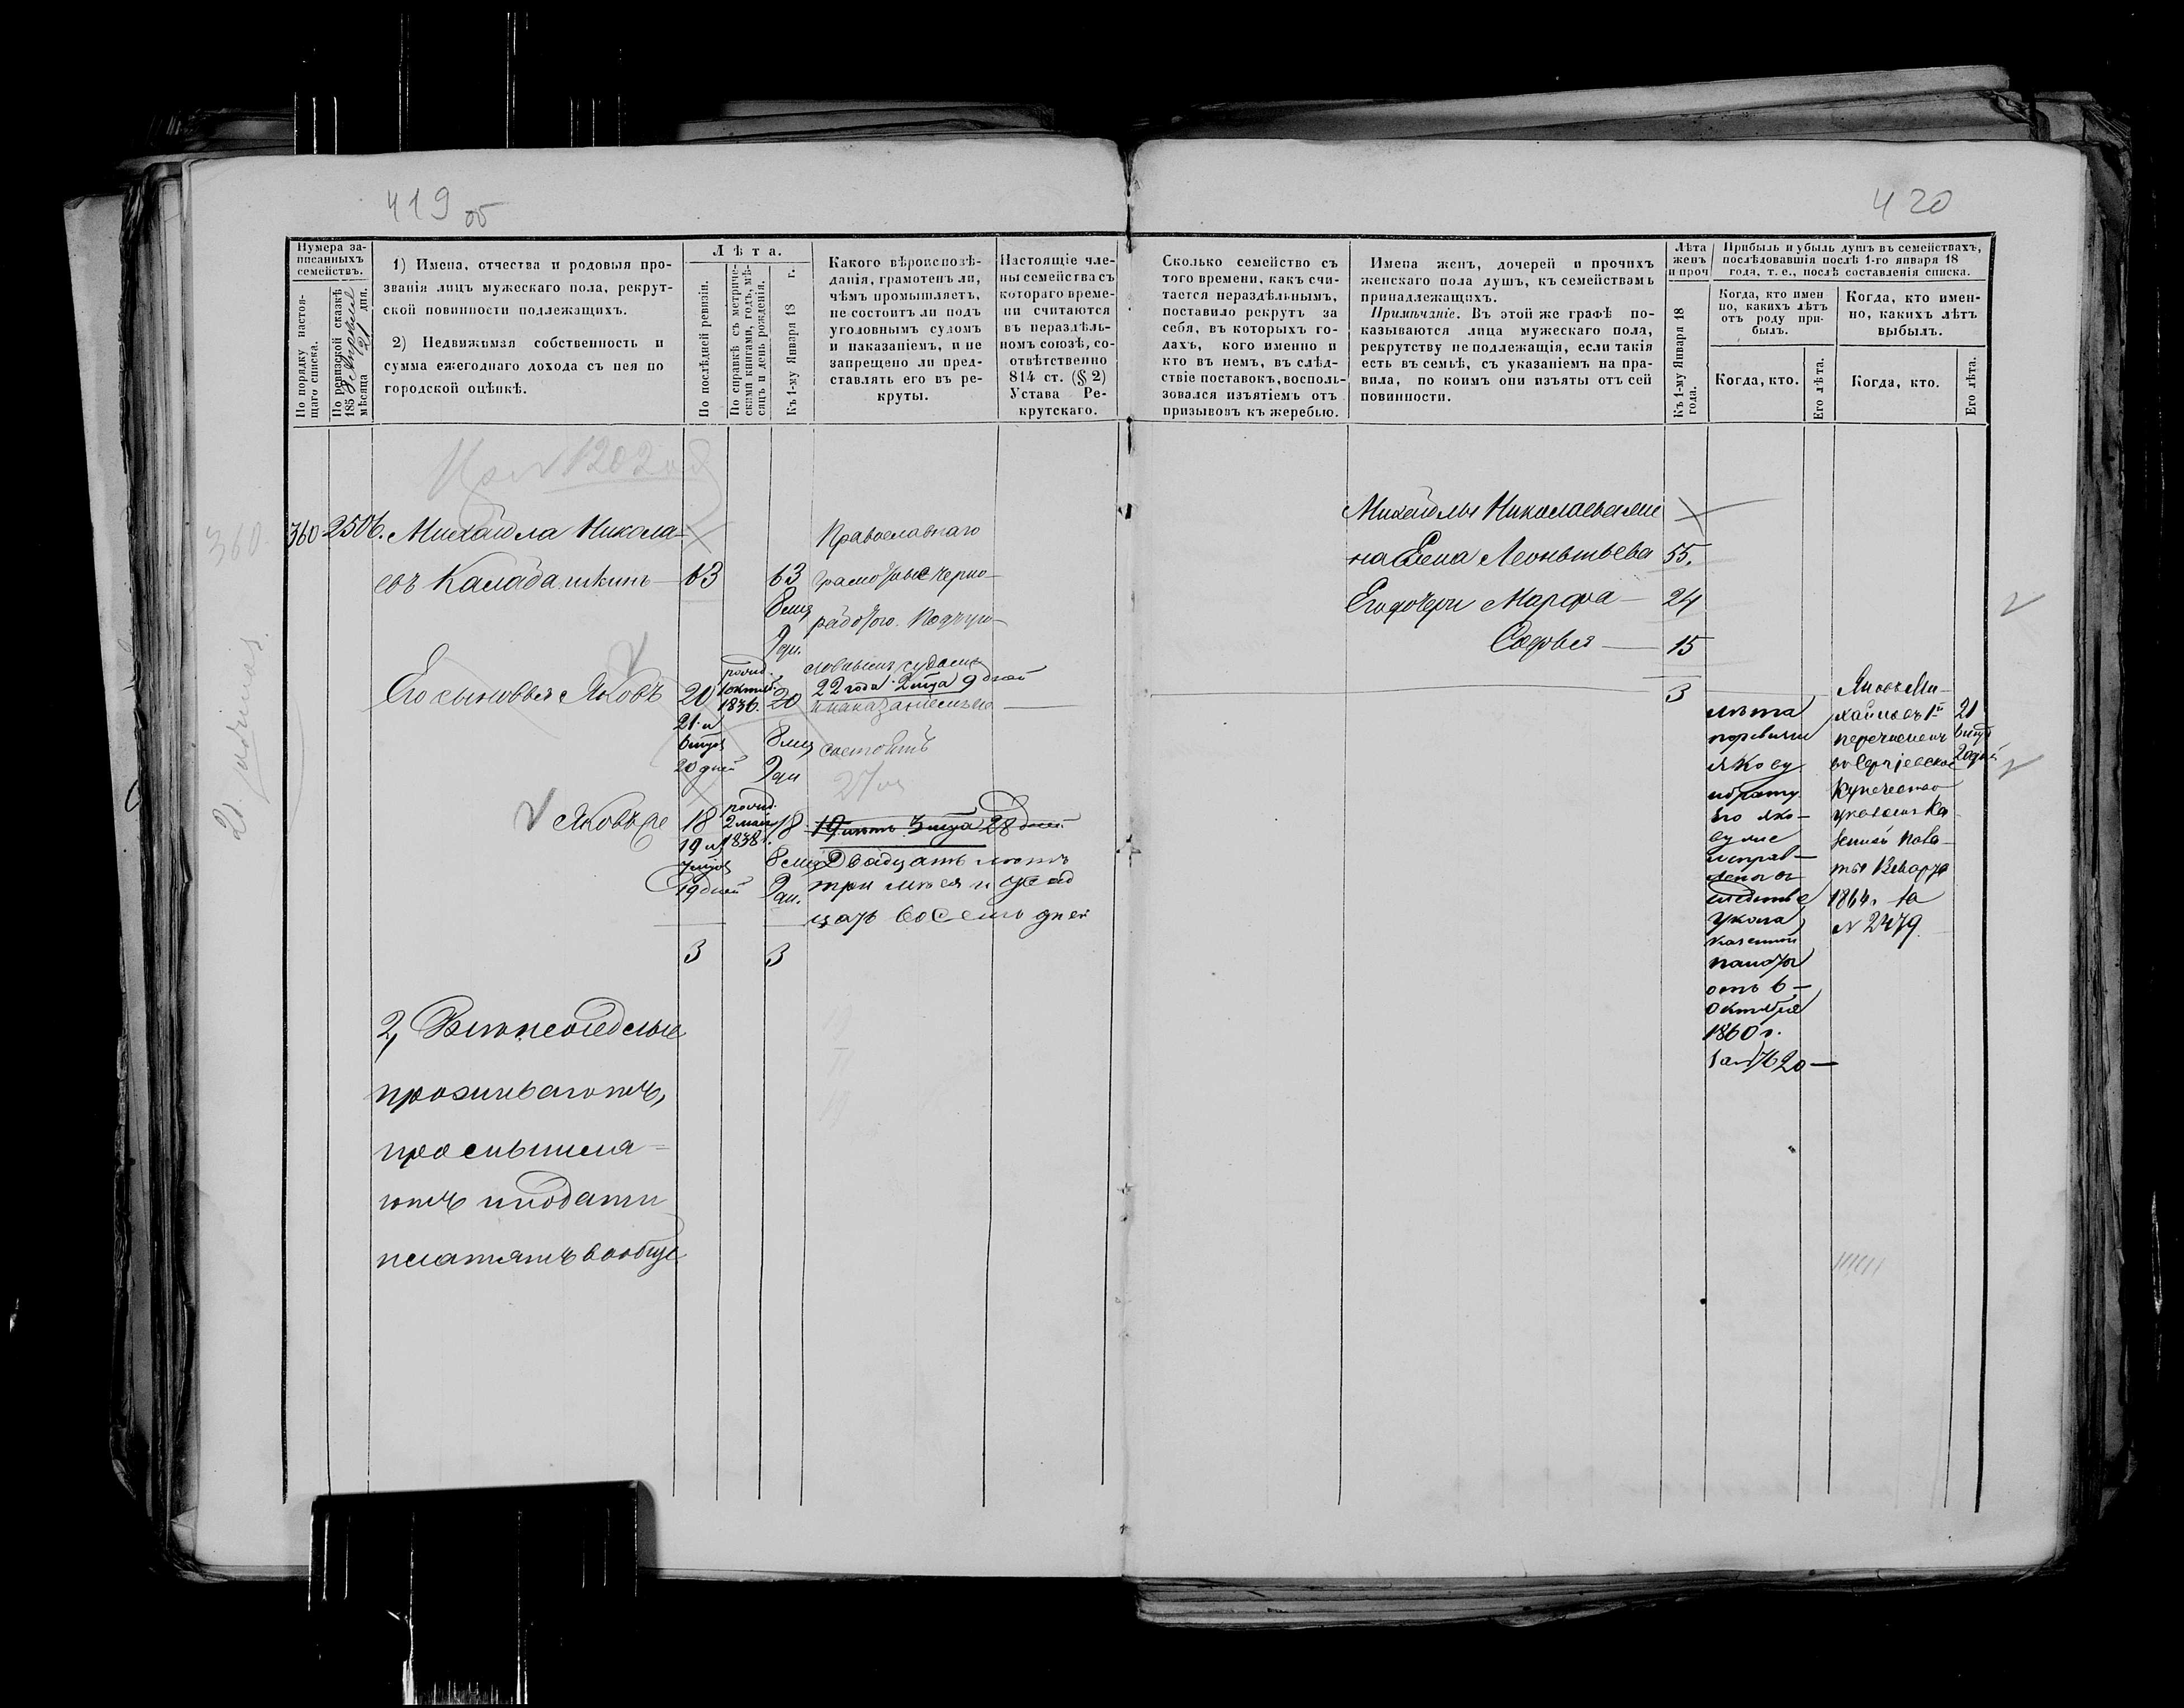 419 об
Нумера за-
писанныхъ
семействъ.
По порядку настоя-
щаго списка.
По ревизской сказкѣ
1858 Апрѣля 21 дня.
мѣсяца
1) Имена, отчества и родовыя про-
званія лицъ мужескаго пола, рекрут-
ской повинности подлежащихъ.
2) Недвижимая собственность и
сумма ежегоднаго дохода съ нея по
городской оцѣнкѣ.
Лѣта.
По послѣдней ревизіи.
По справкѣ съ метриче-
скими книгами, годъ, мѣ-
сяцъ и день рожденія.
Къ 1-му Января 18 г.
Какого вѣроисповѣ-
данія, грамотенъ ли,
чѣмъ промышляетъ,
не состоитъ ли подъ
уголовнымъ судомъ
и наказаніемъ, и не
запрещено ли пред-
ставлять его въ ре-
круты.
Настоящіе чле-
ны семейства съ
котораго време-
ни считаются
въ нераздѣль-
номъ союзѣ, со-
отвѣтственно
814 ст. (§ 2)
Устава Ре-
крутскаго.
№ 1202
360.
360 2506. Михайла Никола-
евъ Калада шкинъ 63 63
8 мца
9 дн.
Православнаго
рабо
наказаніемъ не
состоитъ
Его сыновья Яковъ 20
21 и
6 мцов
20 дней
1 октяб.
1836. 20
8 мца
9 дн
22 года 2 мца 9 дней
21.
Яковъ же 18
19 и
7 мцов
19 дней
2 маія
1838 г. 18
8 мца
9 дн.
19 лѣтъ 3 мца 28 дней
Двадцать лѣтъ
три мѣся и
цать восемь дней
3 3
2,
проживаютъ,
ютъ и подати
платятъ вообще
420
Сколько семейство съ
того времени, какъ счи-
тается нераздѣльнымъ,
поставило рекрутъ за
себя, въ которыхъ го-
дахъ, кого именно и
кто въ немъ, въ слѣд-
ствіе поставокъ, восполь-
зовался изъятіемъ отъ
призывовъ къ жеребью.
Имена женъ, дочерей и прочихъ
женскаго пола душъ, къ семействамъ
принадлежащихъ.
Примѣчаніе. Въ этой же графѣ по-
казываются лица мужескаго пола,
рекрутству не подлежащія, если такія
есть въ семьѣ, съ указаніемъ на пра-
вила, по коимъ они изъяты отъ сей
повинности.
Лѣта
женъ
и проч
Къ 1-му Января 18
года.
Прибыль и убыль душъ въ семействахъ,
послѣдовавшія послѣ 1-го января 18
года, т. е., послѣ составленія списка.
Когда, кто имен
но, какихъ лѣтъ
отъ роду при-
былъ.
Когда, кто имен-
но, какихъ лѣтъ
выбылъ.
Когда, кто.
Его лѣта.
Когда, кто.
Его лѣта.
Михайлы Николаева же
на Елена Леонтьева 55.
Его дочери Марфа 24
Софья 15
3
лѣта
Якову
и брату
его Яко-
ву же
исправ-
лены
въ слѣдствіе
Указа
казенной
палаты
отъ 6
октября
1860 г.
за № 7620
Яковъ Ми-
хайловъ 1й 21
перечисленъ 6 мцв
20 дней
Купечество
указомъ Ка
зенной пала-
ты Января
186 г. за
№ 2479